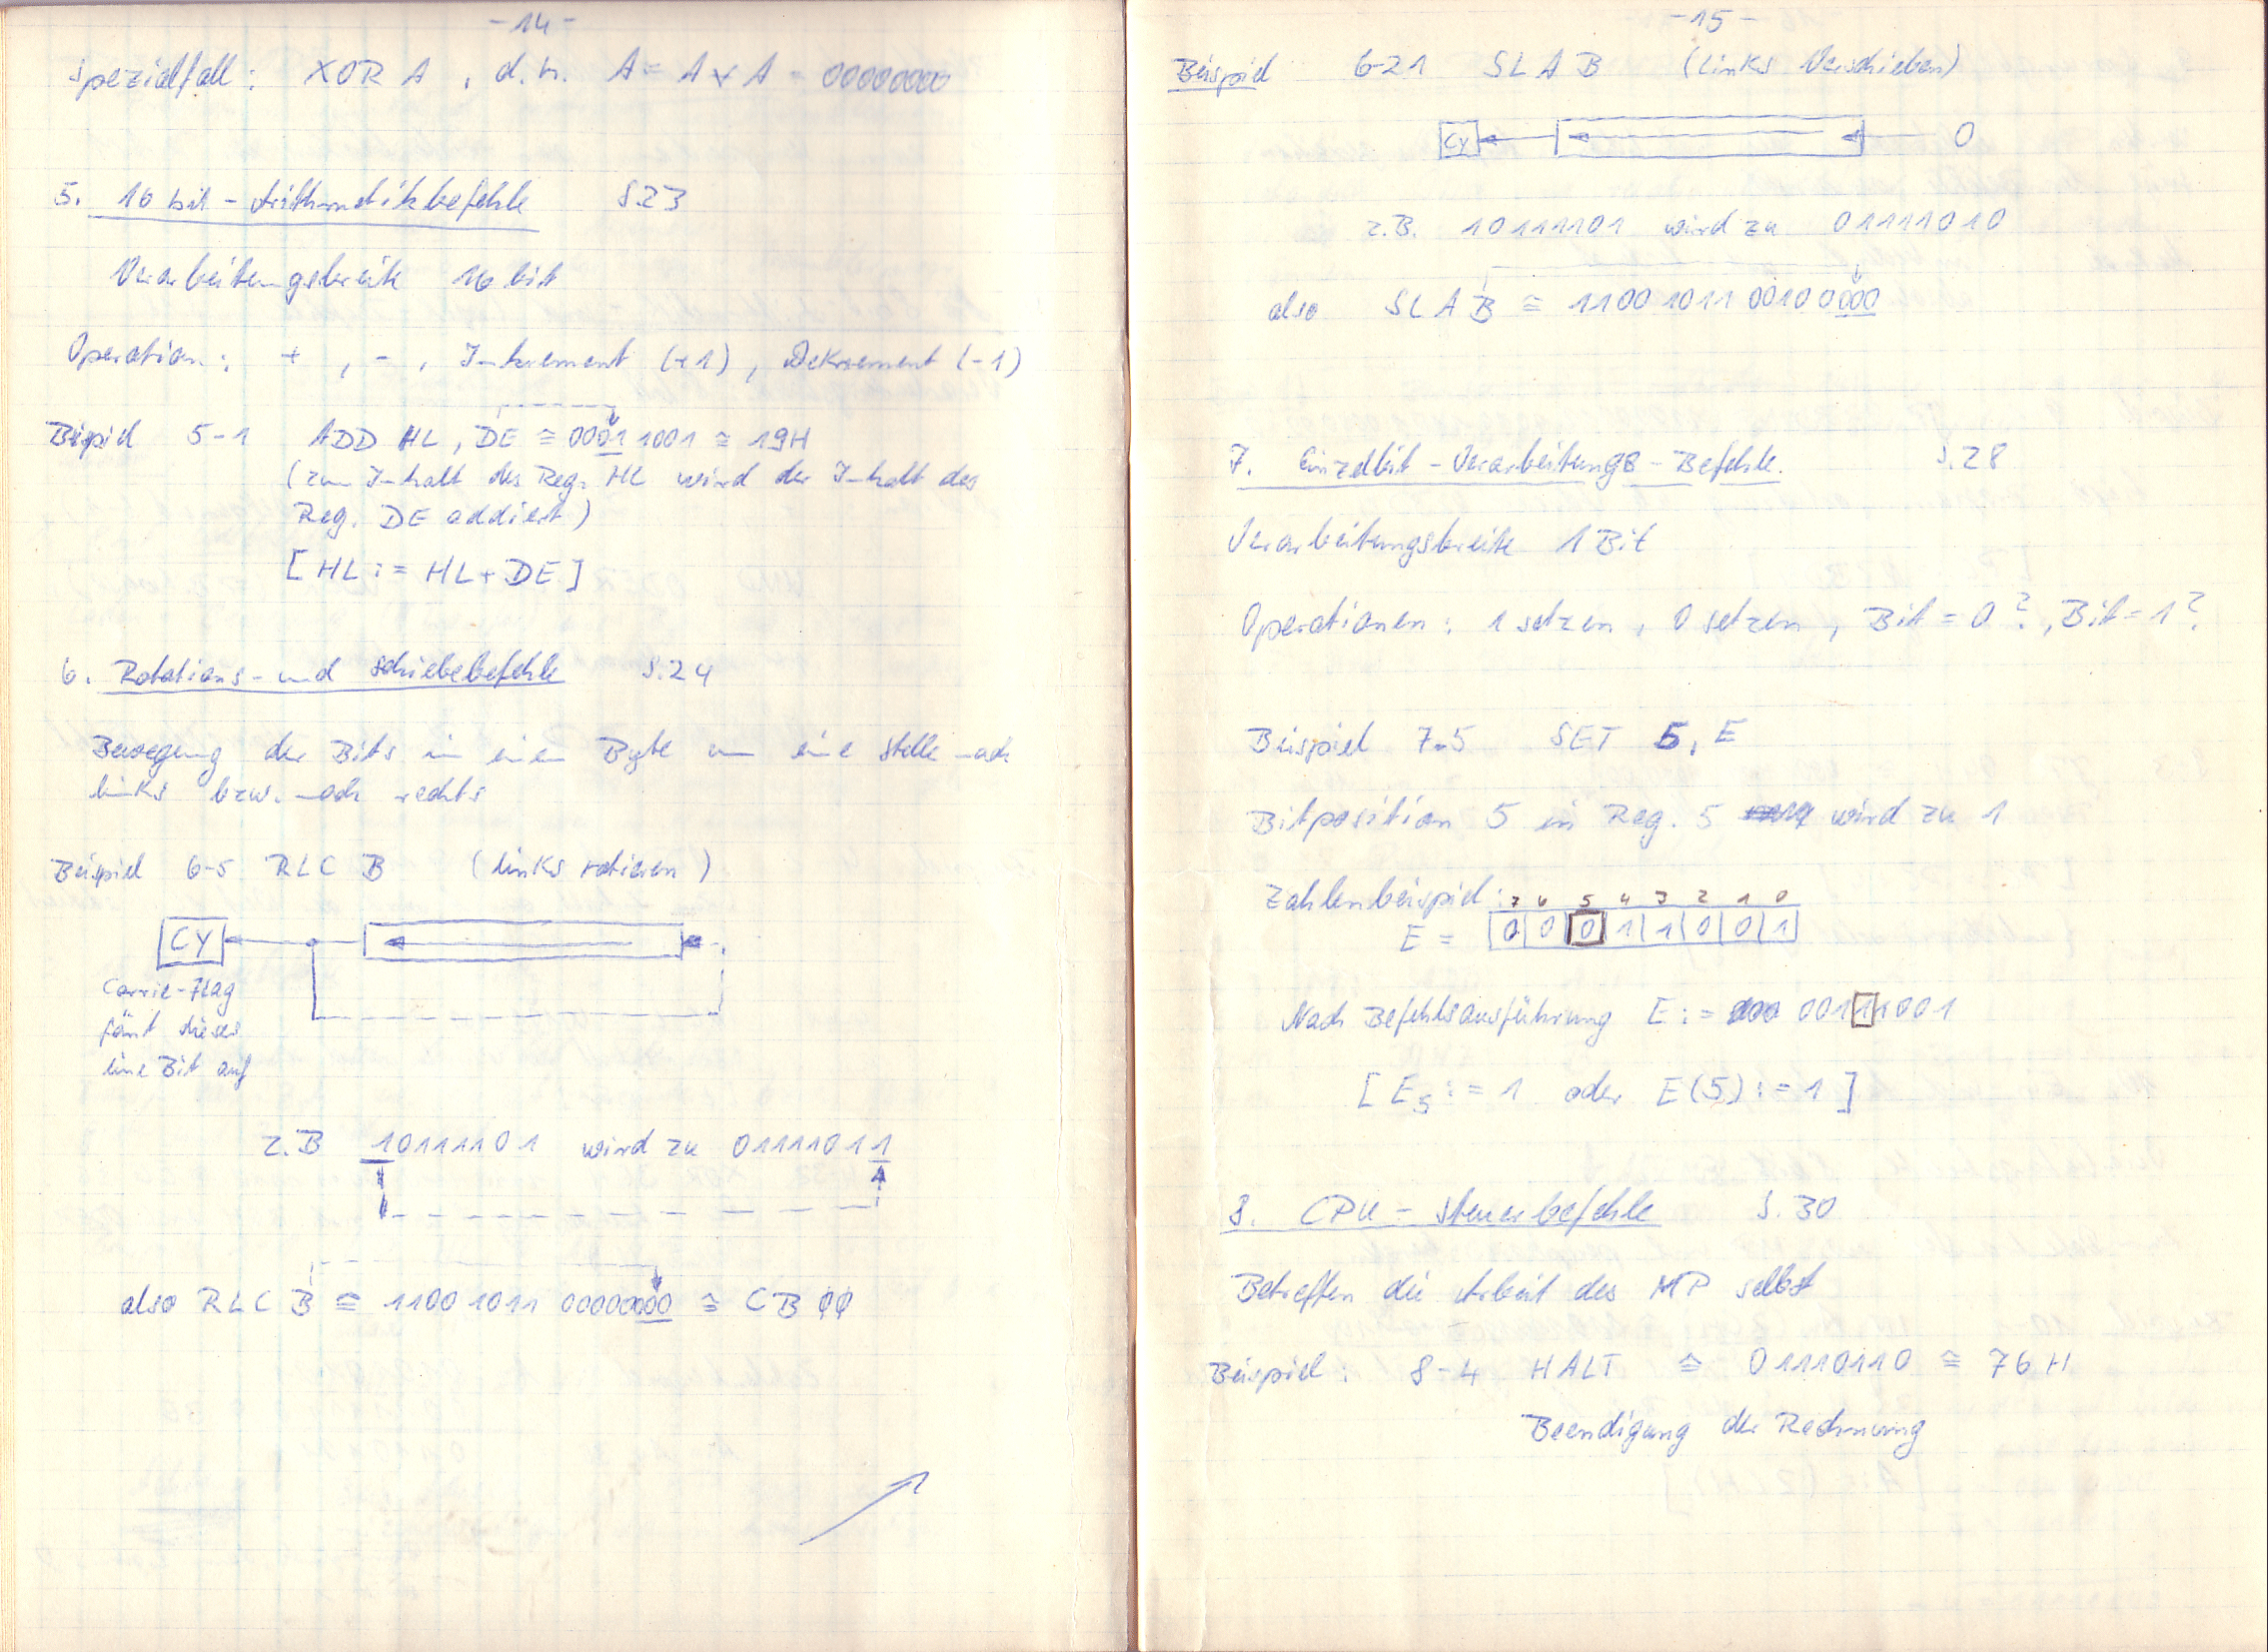 - 14 -
Spezialfall: XOR A, d.h. A = A ⊻ A = 00000000
5. 16 bit - Arithmetikbefehle S.23
Verarbeitungsbreite 16 bit
Operation: + , - , Inkrement (+1), Dekrement (-1)
Beispiel 5-1 ADD HL, DE ≅ 0001 1001 ≅ 19H
(zum Inhalt des Reg. HL wird der Inhalt des
Reg. DE addiert)
[HL := HL + DE]
6. Rotations- und Schiebebefehle S.24
Bewegung der Bits in einem Byte um eine Stelle nach
links bzw. nach rechts
Beispiel 6-5 RLC B (links rotieren)
CY
Carrie-Flag
fänt dieses
eine Bit auf
z.B 10111101 wird zu 01111011
also RLC B ≅ 1100 1011 00000000 ≅ CB 00
- 15 -
Beispiel 6-21 SLA B (Links Verschieben)
CY 0
z.B. 10111101 wird zu 01111010
also SLA B ≅ 1100 1011 0010 0000
7. Einzelbit - Verarbeitungs - Befehle. S.28
Verarbeitungsbreite 1 Bit
Operationen: 1 setzen, 0 setzen, Bit = 0?, Bit = 1?
Beispiel 7-5 SET 5, E
Bitposition 5 in Reg. 5 wird zu 1
Zahlenbeispiel: 7 6 5 4 3 2 1 0
E = 0 0 0 1 1 0 0 1
Nach Befehlsausführung E := 00111001
[E5 := 1 oder E(5) := 1]
8. CPU - Steuerbefehle S. 30
Betreffen die Arbeit des MP selbst
Beispiel: 8-4 HALT ≅ 01110110 ≅ 76 H
Beendigung der Rechnung